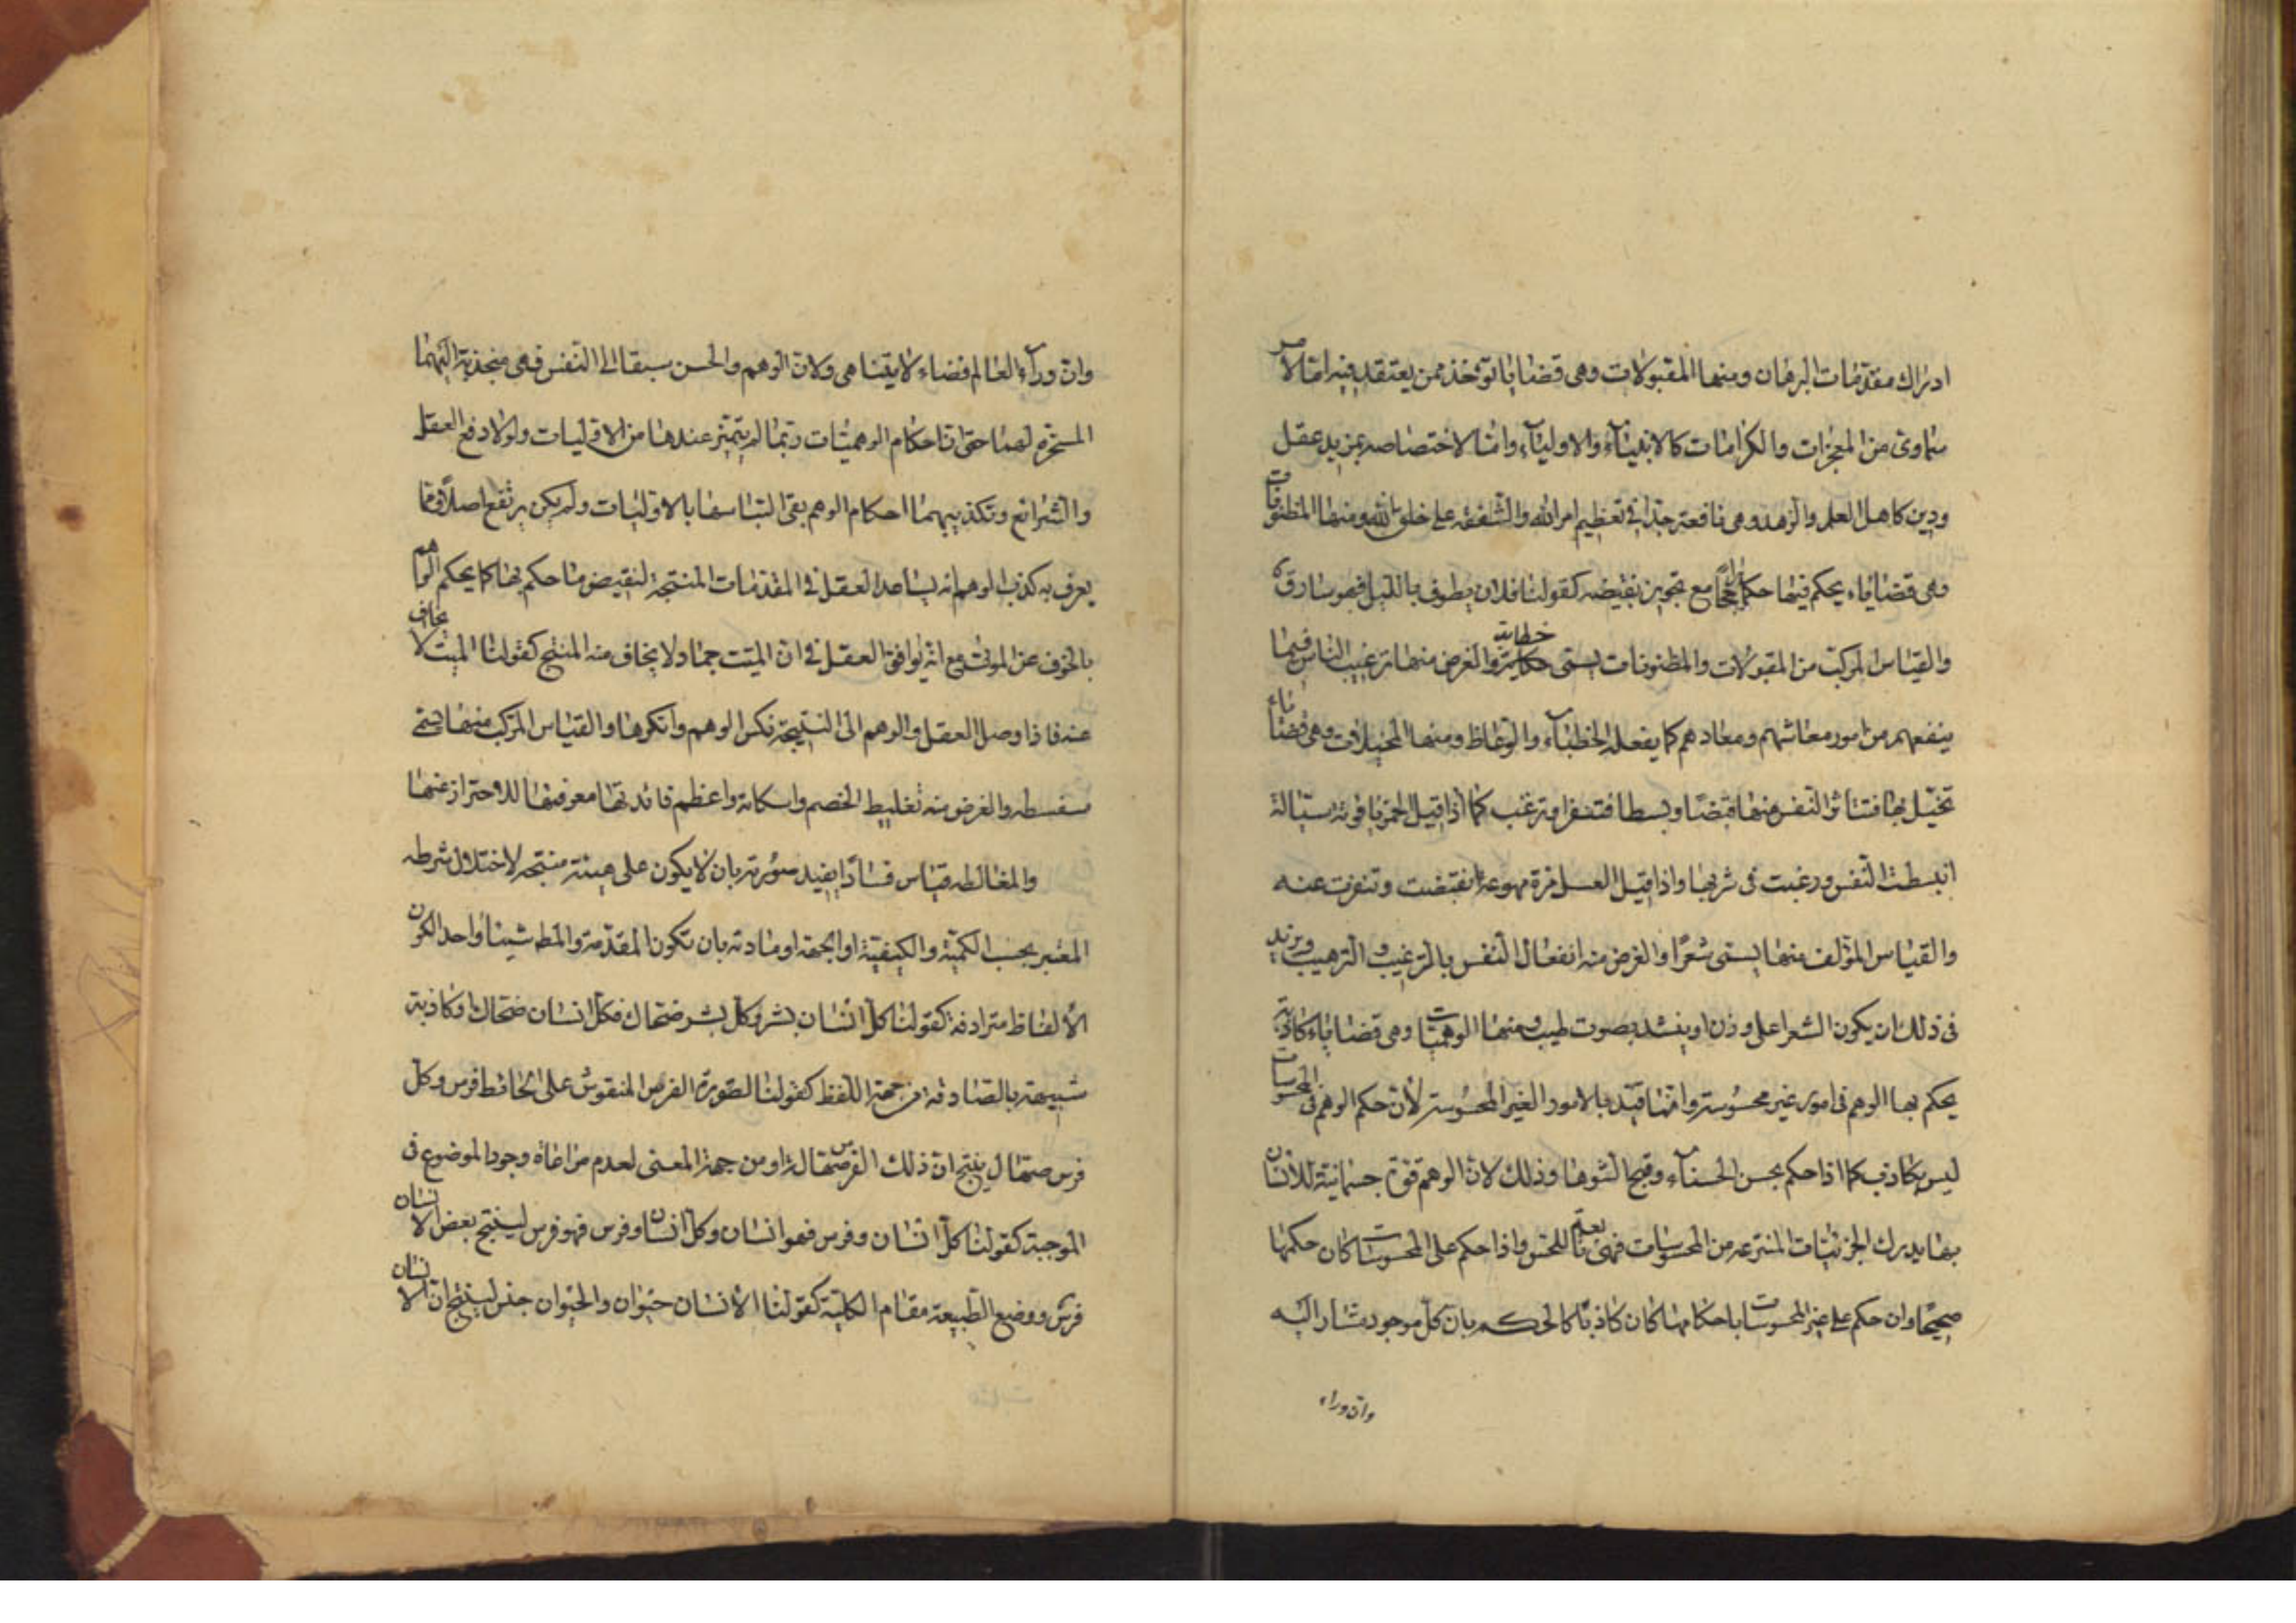 ادراك مقدمات البرهان ومنها المقبولات وهى قضايا تؤخذ ممن يعتقد فيه امّا لامر
سماوى من المعجزات والكرامات كالانبياء والاولياء وامّا لاختصاصه بمزيد عقل
ودين كاهل العلم والزهد وهى نافعة جدّا فى تعظيم امر الله والشفقة على خلق الله ومنها المظنونات
وهى قضاياء يحكم فيها حكما راجحًا مع تجويز نقيضه كقولنا فلان يطوف بالليل فهو سارق
والقياس المركّب من المقبولات والمظنونات يسمّى خطابة والغرض منها ترغيب الناس فيما
ينفعهم من امور معاشهم ومعادهم كما يفعله الخطباء والوعّاظ ومنها المخيلات وهى قضاياء
تخيّل بها فتتاثر النفس منها قبضًا وبسطا فتنفر او ترغب كما اذا قيل الخمر ياقوتة سيّالة
انبسطت النفس ورغبت فى شربها واذا قيل العسل مرّة مهوعة انقبضت وتنفرت عنه
والقياس المؤلف منها يسمى شعرًا والغرض منه انفعال النفس بالترغيب والترهيب ويزيد
فى ذلك ان يكون الشعر على وزن او ينشد بصوت طيب ومنها الوهميّات وهى قضاياء كاذبة
يحكم بها الوهم فى امور غير محسوسة وانّما قيّد بالامور الغير المحسوسة لأن حكم الوهم فى المحسوسات
ليس بكاذب كما اذا حكم بحسن الحسناء وقبح الشوهاء وذلك لانّ الوهم قوّة جسمانية للأنسان
بها يدرك الجزئيّات المنتزعة من المحسوسات فهى تابعة للحسّ واذا حكم على المحسوسات كان حكمها
صحيحًا وان حكم على غير المحسوسات باحكامها كان كاذبًا كالحكم بان كلّ موجود مشار اليه
وان وراء
وانّ وراء العالم فضاء لا يتناهى ولانّ الوهم والحسّ سبقا الى النفس فهى منجذبة اليهما
المسخّرة لهما حتّى انّ احكام الوهميّات ربّما لم يتميّز عندها من الاوّليات ولولا دفع العقل
والشرائع وتكذيبهما احكام الوهم بقى التباسها بالاوّليات ولم يكن يرتفع اصلاً وممّا
يعرف به كذب الوهم انّه يساعد العقل فى المقدّمات المنتجة لنقيض ما حكم بها كما يحكم الوهم
بالخوف عن الموتى مع انّه يوافق العقل فى انّ الميّت جماد والجماد لا يخاف منه المنتج كقولنا الميّت لا يخاف
عنه فاذا وصل العقل والوهم الى النتيجة نكس الوهم وانكرها والقياس المركّب منها يسمّى
سفسطه والغرض منه تغليط الخصم واسكاته واعظم فائدتها معرفتها للاحتراز عنها
والمغالطه قياس فسادًا يفيد صورته بان لا يكون على هيئة منتجه لاختلال شرطه
المعتبر بحسب الكميّة والكيفيّة او الجهة او مادته بان تكون المقدّمة والمط شيئا واحدا لكون
الألفاظ مترادفة كقولنا كلّ انسان بشر وكلّ بشر ضحّاك فكلّ انسان ضحّاك او كاذبة
شبيهة بالصّادقة من جهة اللفظ كقولنا لصورة الفرس المنقوش على الحائط فرس وكلّ
فرس صهّال ينتج انّ ذلك الفرس صهّال او من جهة المعنى لعدم مراعاة وجود الموضوع فى
الموجبة كقولنا كلّ انسان وفرس فهو انسان وكلّ انسان وفرس فهو فرس لينتج بعض الانسان
فرس ووضع الطّبيعة مقام الكليّة كقولنا الأنسان حيوان والحيوان جنس لينتج انّ الانسان